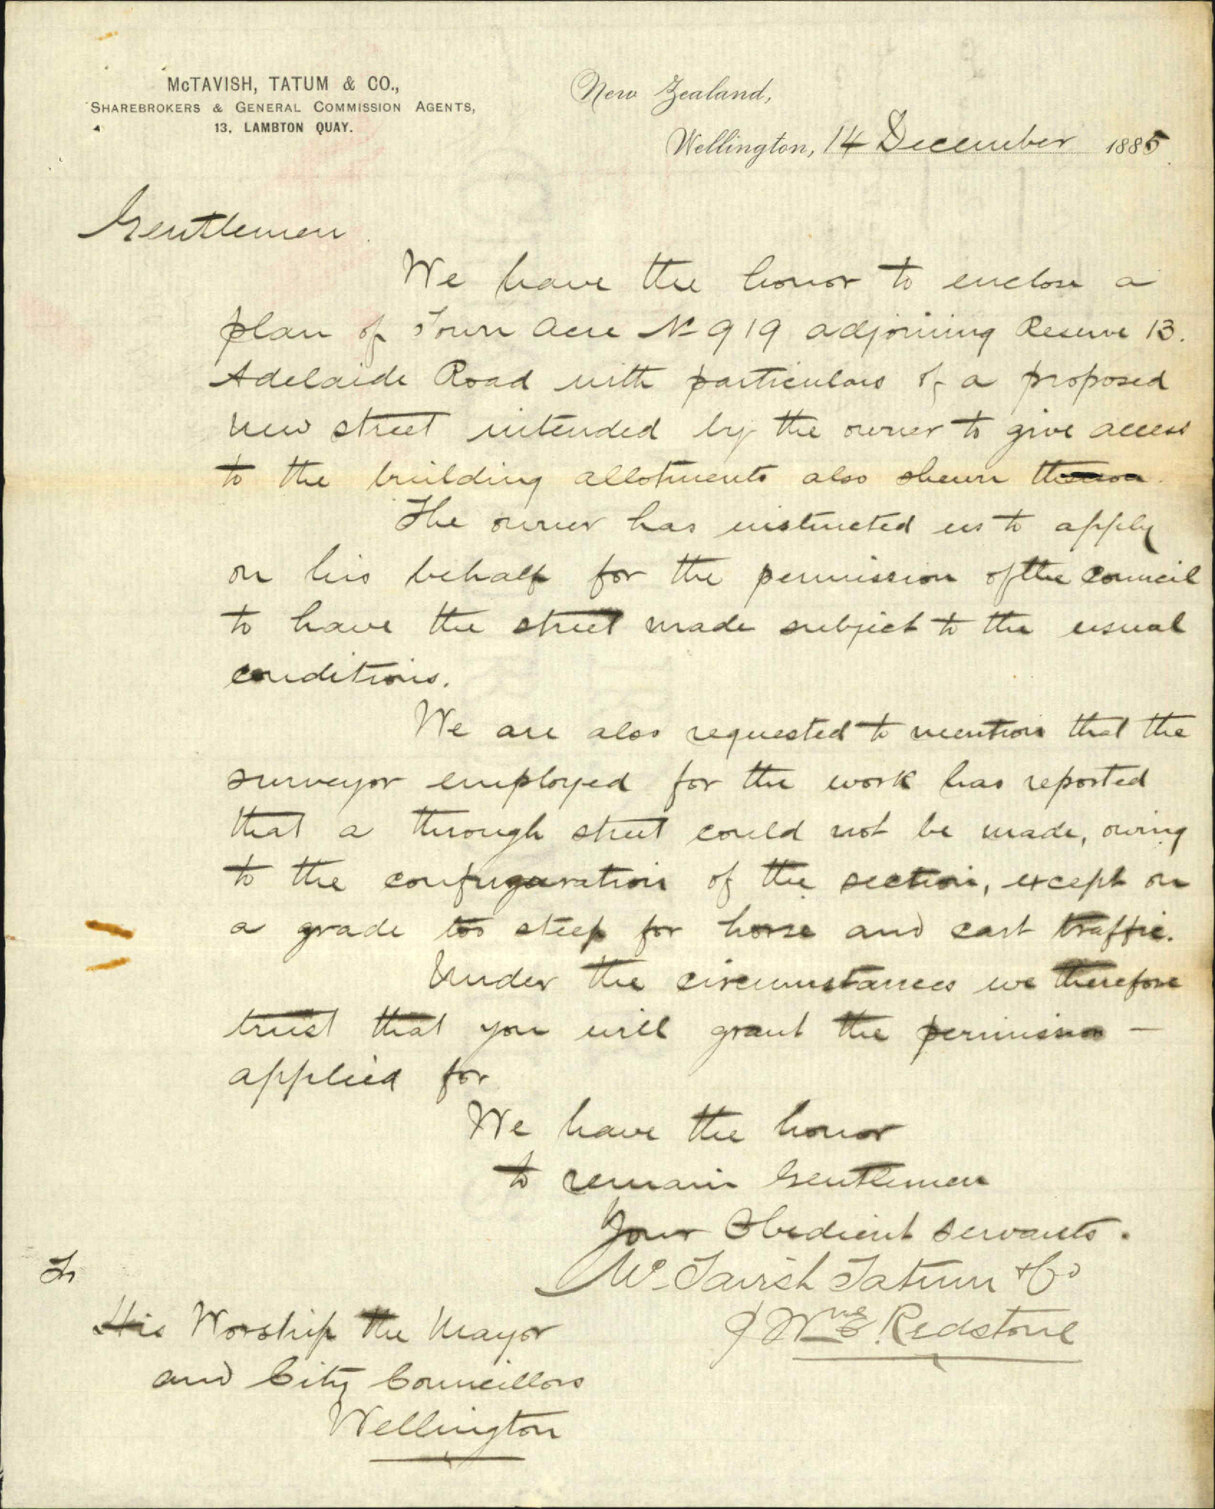 McTAVISH, TATUM & CO.,
SHAREBROKERS & GENERAL COMMISSION AGENTS,
13, LAMBTON QUAY.
New Zealand,
Wellington, 14 December 1885
Gentlemen
We have the honor to enclose a
plan of Town Acre No 919 adjoining Reserve 13.
Adelaide Road with particulars of a proposed
new street intended by the owner to give access
to the building allotments also shewn thereon.
The owner has instructed us to apply
on his behalf for the permission of the Council
to have the street made subject to the usual
conditions.
We are also requested to mention that the
surveyor employed for the work has reported
that a through street could not be made, owing
to the configuration of the section, except on
a grade too steep for horse and cart traffic.
Under the circumstances we therefore
trust that you will grant the permission –
applied for
We have the honor
to remain Gentlemen
Your Obedient servants.
McTavish Tatum & Co
Redstone
To
His Worship the Mayor
and City Councillors
Wellington